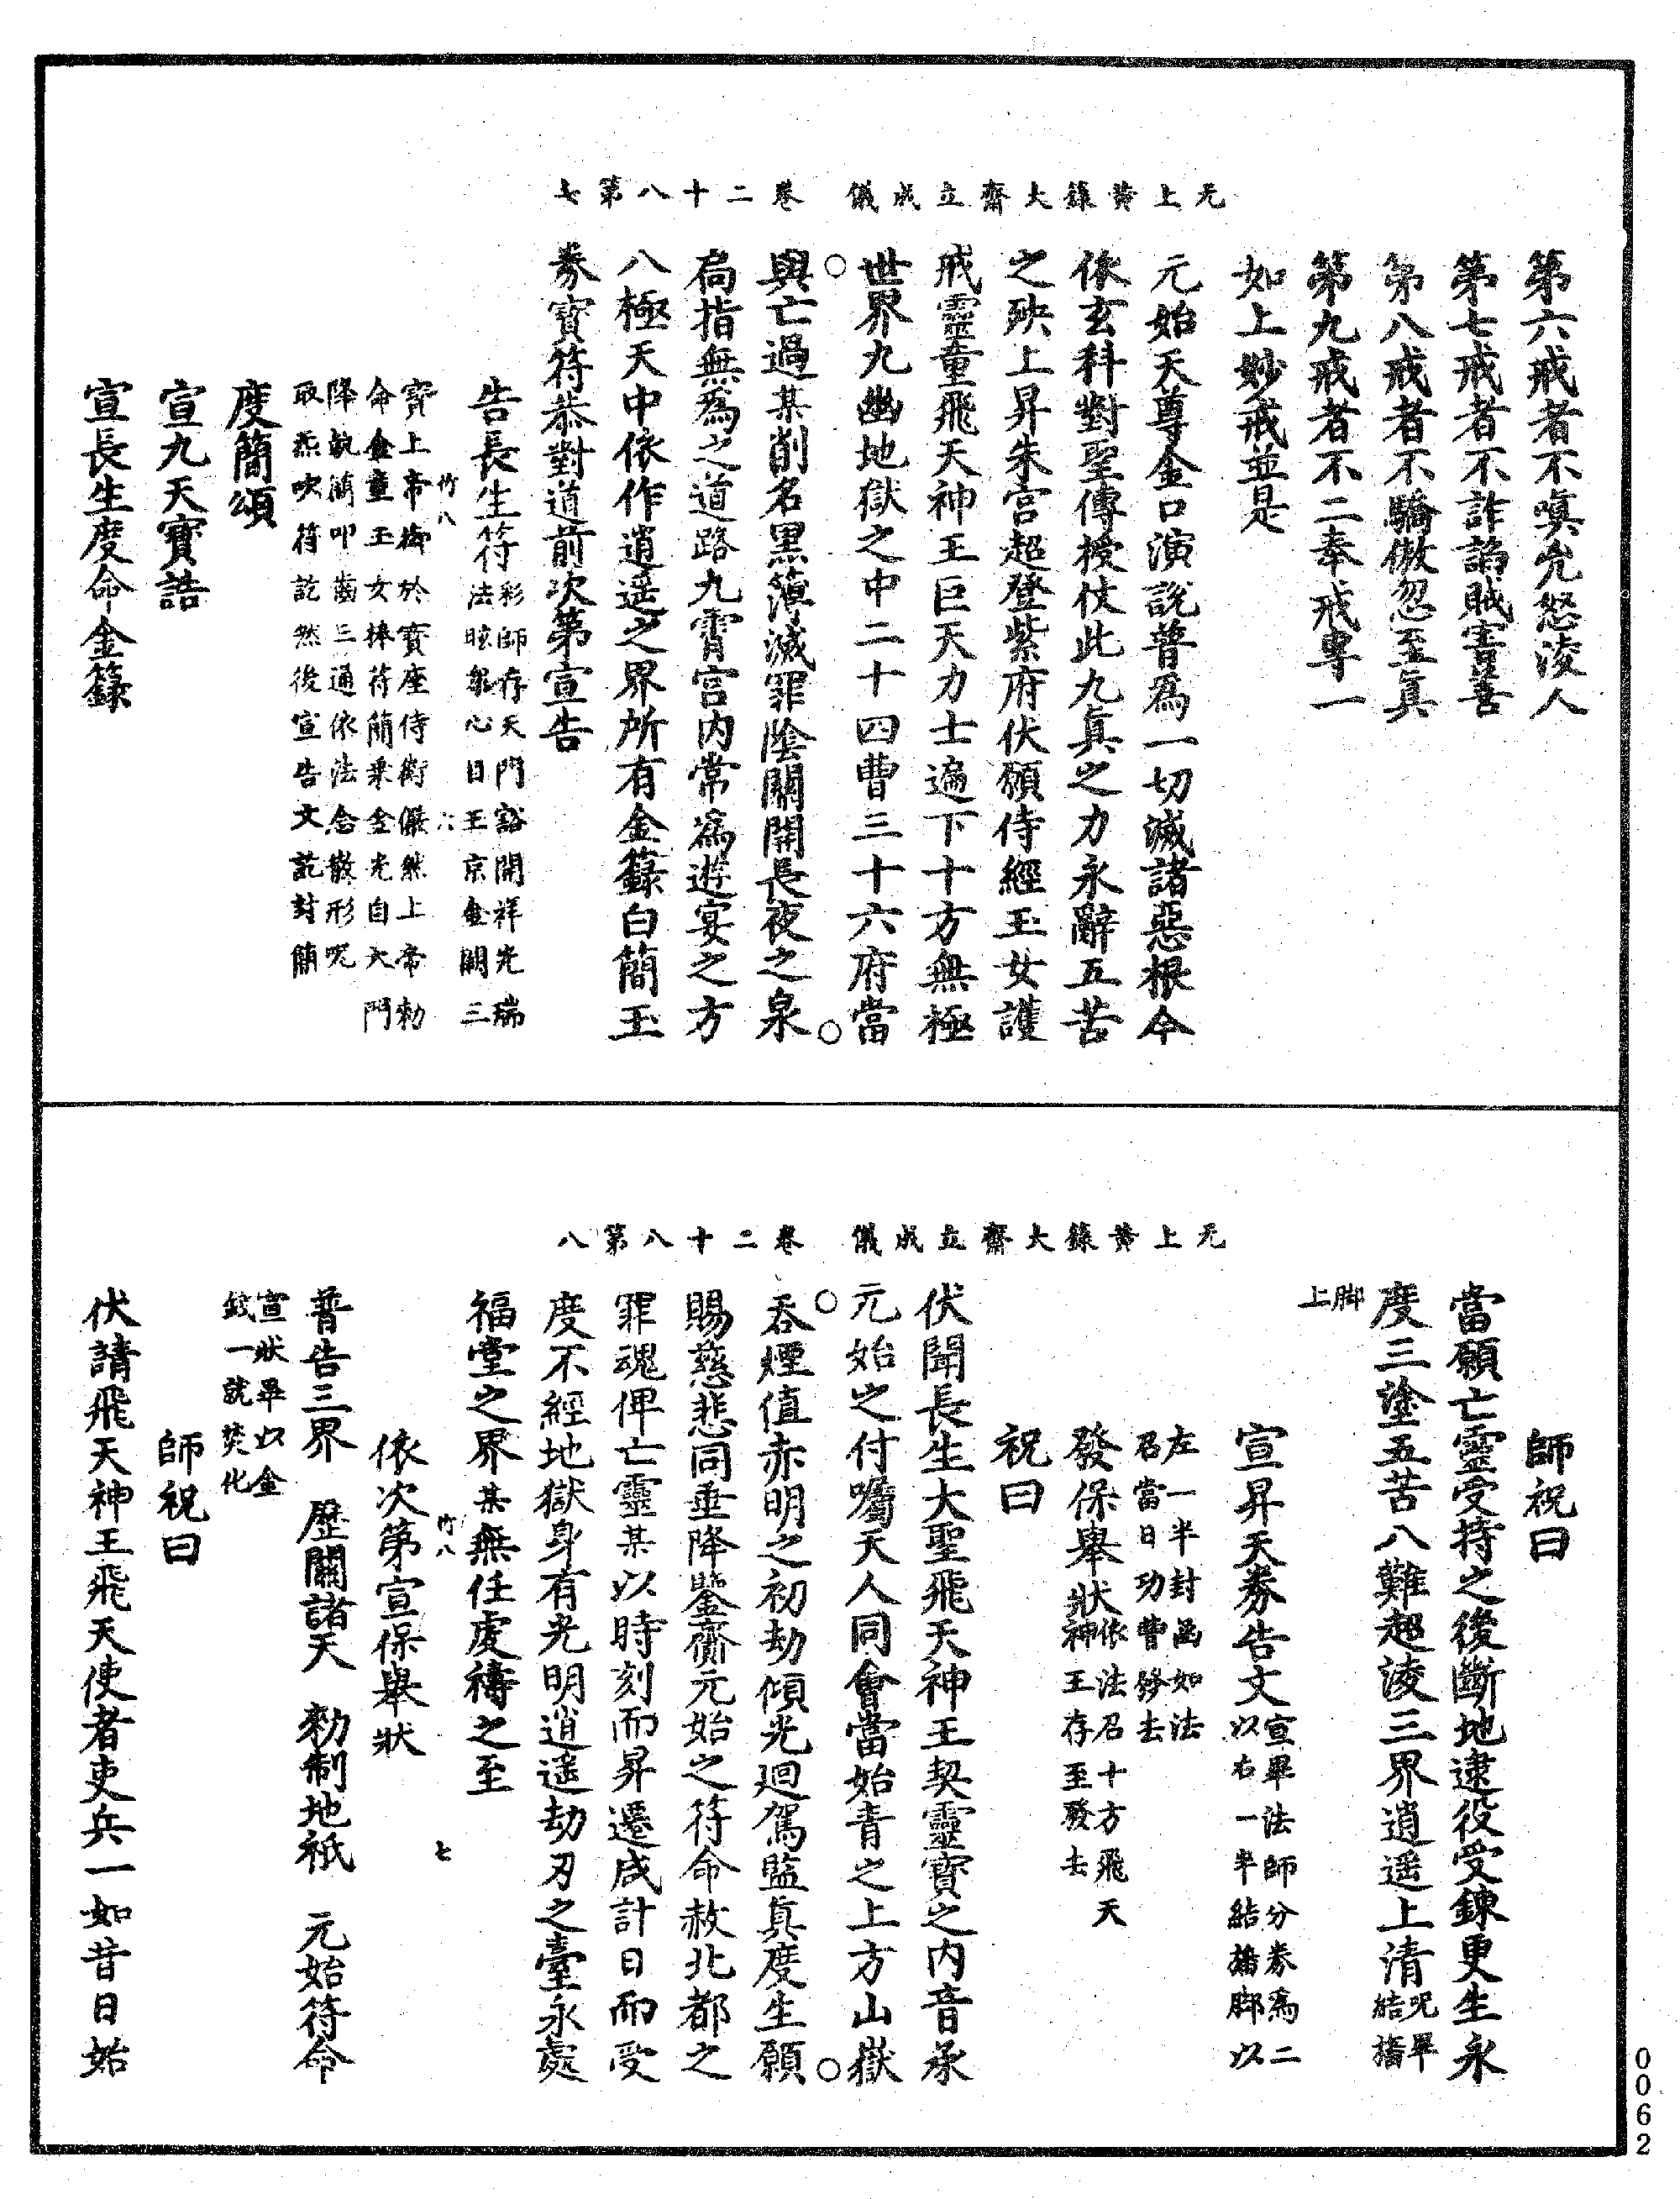 无上黃籙大齋立成儀　卷二十八第七
第六戒者不嗔允怒淩人
第七戒者不詐諂賊害善
第八戒者不驕傲忽至真
第九戒者不二奉戒專一
如上妙戒並是
元始天尊金口演說普為一切滅諸惡根今
依玄科對聖傳授仗此九真之力永辭五苦
之殃上昇朱宮超登紫府伏願侍經玉女護
戒靈童飛天神王巨天力士遍下十方無極
世界九幽地獄之中二十四曹三十六府當
與亡過某削名黑簿滅罪陰關開長夜之泉
扃指無為之道路九霄宮內常為遊宴之方
八極天中依作逍遙之界所有金籙白簡玉
券寶符恭對道前次第宣告
告長生符
師存天門豁開祥光瑞
彩法眩衆心目玉京金闕三
竹八　六
寶上帝御於寶座侍衛儼然上帝勑
命金童玉女捧符簡乘金光自天門
降執簡叩齒三通依法念散形呪
取炁吹符訖然後宣告文訖封簡
度簡頌
宣九天寶誥
宣長生度命金籙
无上黃籙大齋立成儀　卷二十八第八
師祝曰
當願亡靈受持之後斷地逮役受鍊更生永
度三塗五苦八難超淩三界逍遙上清
呪畢
結播
脚
上
宣昇天券告文
宣畢法師分券為二
以右一半結旛脚以
左一半封函如法
召當日功曹發去
發保舉狀
依法召十方飛天
神王存至發去
祝曰
伏聞長生大聖飛天神王契靈寶之內音承
元始之付囑天人同會當始青之上方山嶽
吞煙值赤明之初劫傾光迴駕監真度生願
賜慈悲同垂降鑒齋元始之符命赦北都之
罪魂俾亡靈某以時刻而昇遷咸計日而受
度不經地獄身有光明逍遙劫刃之臺永處
福堂之界某無任虔禱之至
竹八　七
依次第宣保舉狀
普告三界　歷關諸天　勑制地祇　元始符命
宣狀畢以金
錢一就焚化
師祝曰
伏請飛天神王飛天使者吏兵一如昔日始
0062